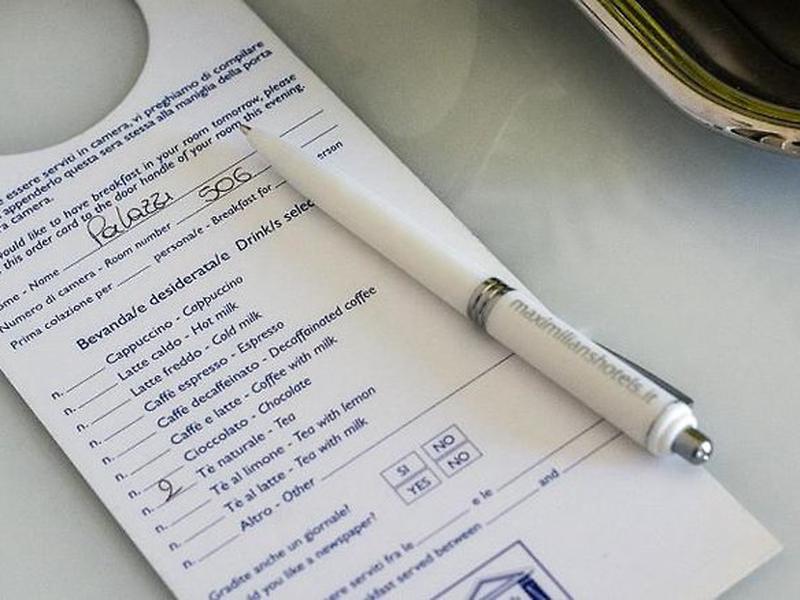 essere serviti in camera, vi preghiamo di compilare
appenderlo questa sera stessa alla maniglia della porta
a camera.
would like to have breakfast in your room tomorrow, please
this order card to the door handle of your room this evening.
ome - Name Palazzi
Numero di camera - Room number 506
Prima colazione per ____ persona/e - Breakfast for ____ erson
Bevanda/e desiderata/e Drink/s selec
n. ____ Cappuccino - Cappuccino
n. ____ Latte caldo - Hot milk
n. ____ Latte freddo - Cold milk
n. ____ Caffè espresso - Espresso
n. ____ Caffè decaffeinato - Decaffeinated coffee
n. ____ Caffè e latte - Coffee with milk
n. ____ Cioccolato - Chocolate
n. 2 Tè naturale - Tea
n. ____ Tè al limone - Tea with lemon
n. ____ Tè al latte - Tea with milk
Altro - Other
Gradite anche un giornale? SI NO
ould you like a newspaper? YES NO
essere serviti fra le ____ e le ____
eakfast served between ____ and ____
maximilianshotels.it